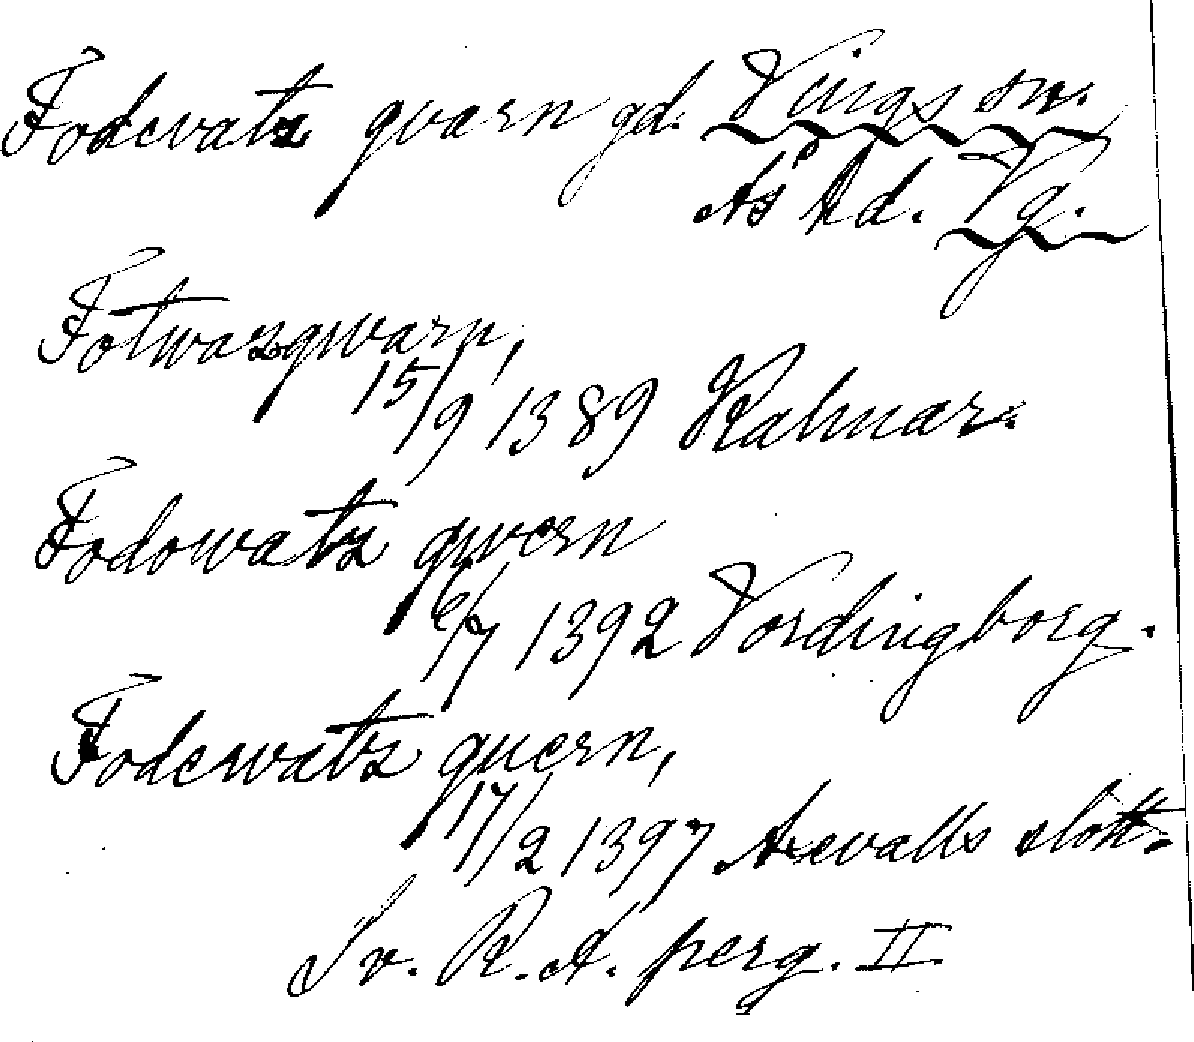 Fodevatz qvarn gd. Vings sn.
Ås hd. Vg.
Fotwazqwarn,
15/9 1389 Kalmar.
Fodowatz qwern
6/7 1392 Vordingborg.
Fodewatz quern,
17/2 1397 Axevalls slott.
Sv. R. A. perg. II.